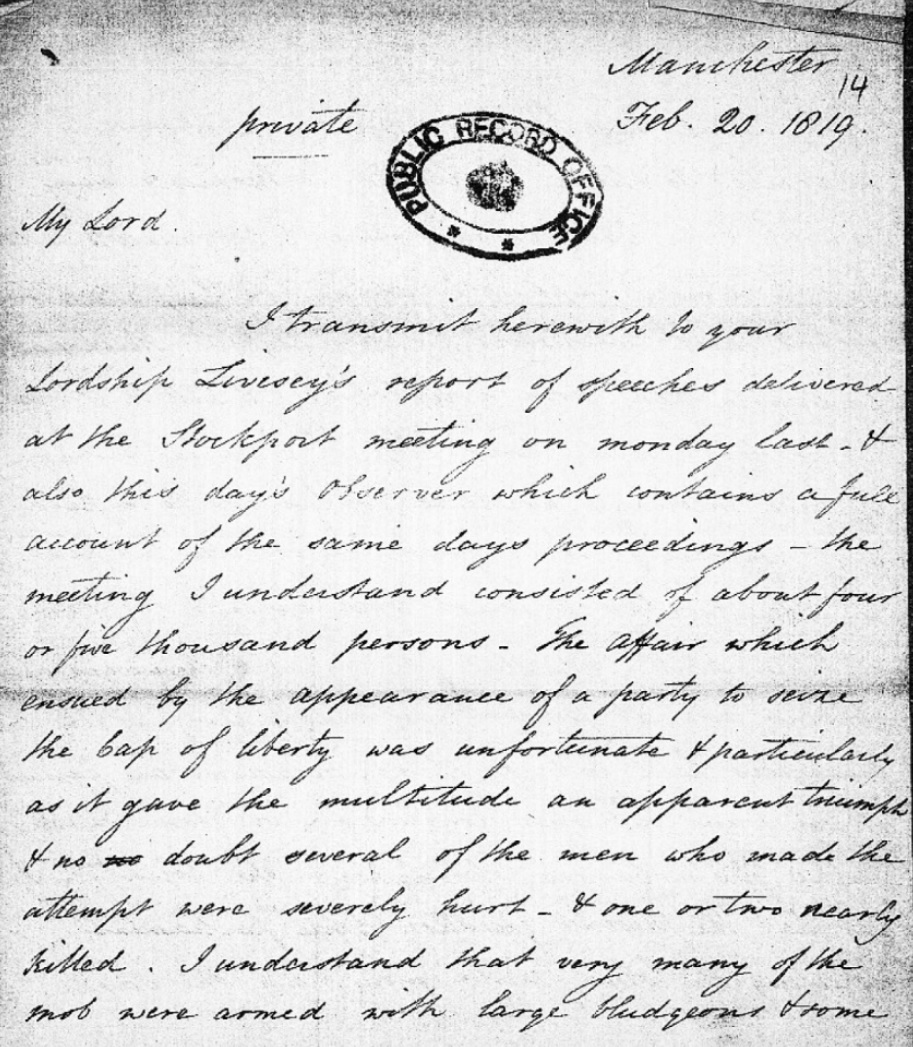 Manchester
14
private
Feb. 20. 1819.
PUBLIC RECORD OFFICE
My Lord.
I transmit herewith to your
Lordship Livesey's report of speeches delivered
at the Stockport meeting on monday last - &
also this day's Observer which contains a full
account of the same days proceedings - the
meeting I understand consisted of about four
or five thousand persons - The affair which
ensued by the appearance of a party to seize
the Cap of liberty was unfortunate & particularly
as it gave the multitude an apparent triumph
& no no doubt several of the men who made the
attempt were severely hurt - & one or two nearly
killed. I understand that very many of the
mob were armed with large bludgeons & some